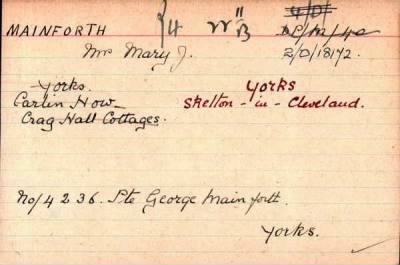 MAINFORTH
Mrs Mary J.
2/0/18172.
Yorks. Yorks
Carlin How Skelton - in - Cleveland.
Crag Hall Cottages.
No/4236. Pte George Mainforth.
Yorks.